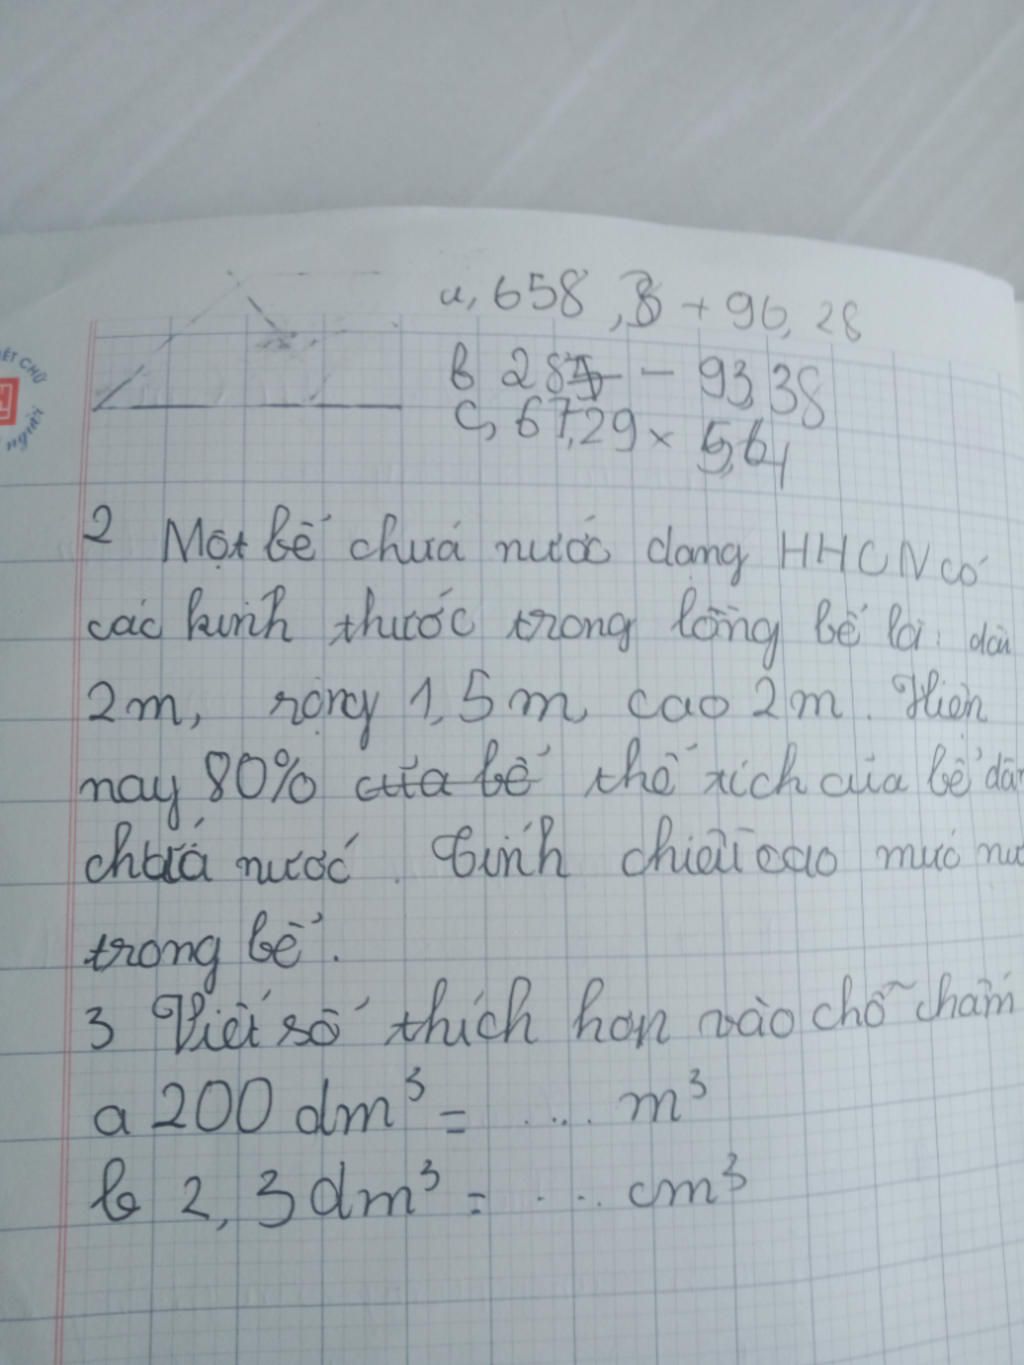 a, 658,3 + 96,28
b 285 - 93,38
c, 67,29 x 5,64
ẾT CHỮ
người
2 Một bể chưá nước dạng HHCN có
các kính thước trong lồng bể là: dài
2m, rộng 1,5m, cao 2m. Hiện
nay 80% của bể thể tích của bể
chứa nước. Tính chiều cao mực
trong bể.
3 Viết số thích hơn vào chỗ chấm
a 200 dm³ = .... m³
b 2,3dm³ = .... cm³